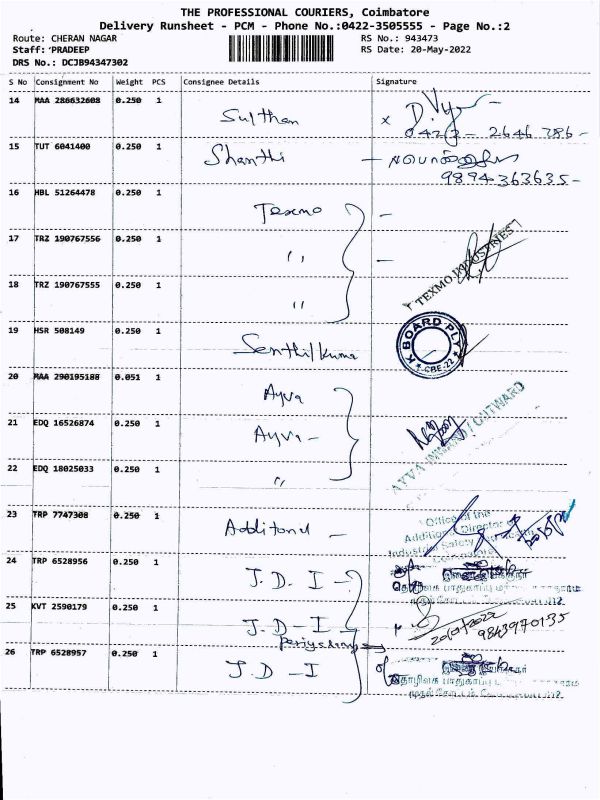 THE PROFESSIONAL COURIERS, Coimbatore
Delivery Runsheet - PCM - Phone No.:0422-3505555 - Page No.:2
Route: CHERAN NAGAR RS No.: 943473
Staff: PRADEEP RS Date: 20-May-2022
DRS No.: DCJB94347302
S No Consignment No Weight PCS Consignee Details Signature
14 MAA 286632608 0.250 1 Sulthan
x D.
0422 - 2646786 -
15 TUT 6041400 0.250 1 Shanthi
9894363635 -
16 HBL 51264478 0.250 1 Texmo -
17 TRZ 190767556 0.250 1 ,, -
TEXMO INDUSTRIES
18 TRZ 190767555 0.250 1 ,,
19 HSR 508149 0.250 1 Senthilkuma
K BOARD PLY
CBE-22
20 MAA 290195188 0.051 1 Ayva
21 EDQ 16526874 0.250 1 Ayva -
AYVA INWARD / OUTWARD
22 EDQ 18025033 0.250 1 ,,
23 TRP 7747308 0.250 1 Additonal -
Office of the
Additional Director of
Industrial Safety
24 TRP 6528956 0.250 1 J.D-I -
25 KVT 2590179 0.250 1 J.D-I
9843970135
26 TRP 6528957 0.250 1 J.D-I